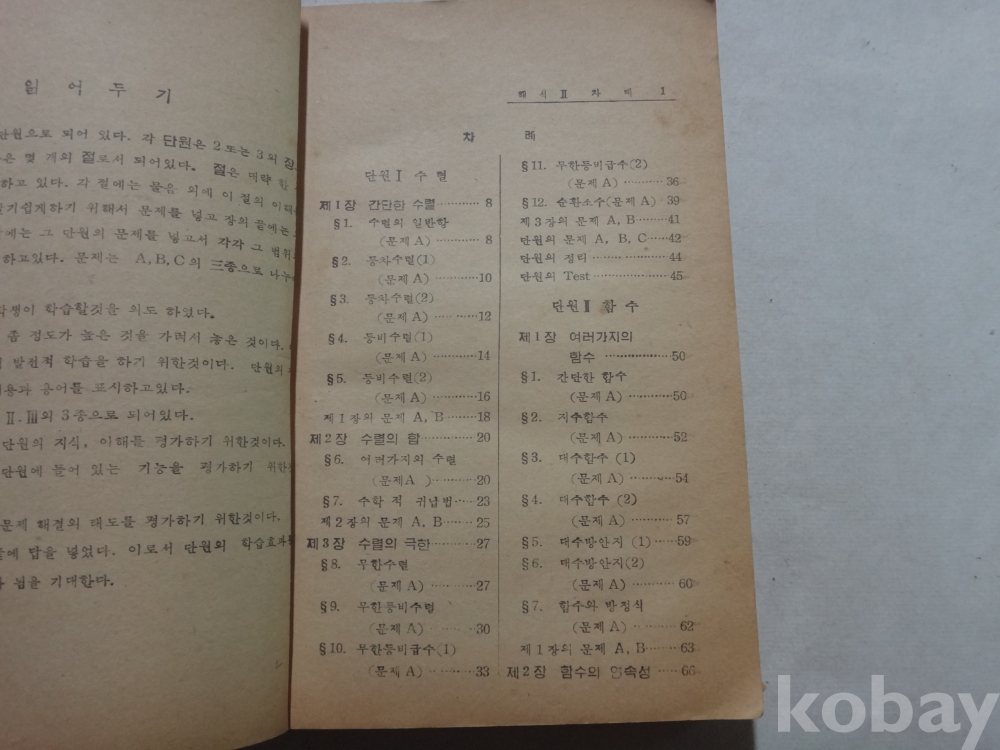 읽 어 두 기
단원으로 되어 있다. 각 단원은 2 또는 3의 장
은 몇 개의 절로서 되어있다. 절은 대략 한
하고 있다. 각 절에는 물음 외에 이 절의 이해
쉽게하기 위해서 문제를 넣고 장의 끝에는
에는 그 단원의 문제를 넣고서 각각 그 범위
하고있다. 문제는 A, B, C의 三종으로 나누
학생이 학습할것을 의도 하였다.
좀 정도가 높은 것을 가려서 놓은 것이다.
발전적 학습을 하기 위한것이다. 단원의
용과 용어를 표시하고있다.
Ⅱ.Ⅲ의 3종으로 되어있다.
단원의 지식, 이해를 평가하기 위한것이다.
단원에 들어 있는 기능을 평가하기 위한
문제 해결의 태도를 평가하기 위한것이다.
에 답을 넣었다. 이로서 단원의 학습효과
됨을 기대한다.
해 석 Ⅱ 차 례 1
차 례
단원 Ⅰ 수 렬
제 1 장 간단한 수렬 ············ 8
§1. 수렬의 일반항
(문제 A) ············ 8
§2. 등차수렬(1)
(문제 A) ············10
§3. 등차수렬(2)
(문제 A) ············12
§4. 등비수렬(1)
(문제 A) ············14
§5. 등비수렬(2)
(문제 A) ············16
제 1 장의 문제 A, B ······18
제 2 장 수렬의 합 ············20
§6. 여러가지의 수렬
(문제 A) ············20
§7. 수학 적 귀납법 ······23
제 2 장의 문제 A, B ······25
제 3 장 수렬의 극한 ············27
§8. 무한수렬
(문제 A) ············27
§9. 무한등비수렬
(문제 A) ············30
§10. 무한등비급수(1)
(문제 A) ············33
§11. 무한등비급수(2)
(문제 A) ············36
§12. 순환소수(문제 A) ···39
제 3 장의 문제 A, B ······41
단원의 문제 A, B, C ······42
단원의 정리 ············44
단원의 Test ············45
단원 Ⅱ 함 수
제 1 장 여러가지의
함수 ············50
§1. 간단한 함수
(문제 A) ············50
§2. 지수함수
(문제 A) ············52
§3. 대수함수 (1)
(문제 A) ············54
§4. 대수함수 (2)
(문제 A) ············57
§5. 대수방안지 (1) ···59
§6. 대수방안지(2)
(문제 A) ············60
§7. 함수와 방정식
(문제 A) ············62
제 1 장의 문제 A, B ······63
제 2 장 함수의 연속성 ······66
kobay